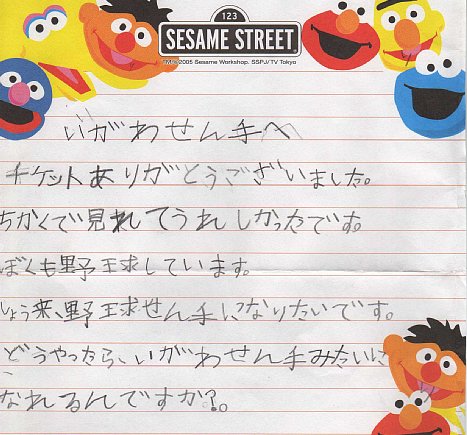 123
SESAME STREET
TM/© 2005 Sesame Workshop. SSPJ/TV Tokyo
いがわせん手へ
チケットありがとうございました。
ちかくで見れてうれしかったです。
ぼくも野球しています。
しょう来、野球せん手になりたいです。
どうやったら、いがわせん手みたいに
なれるんですか?。